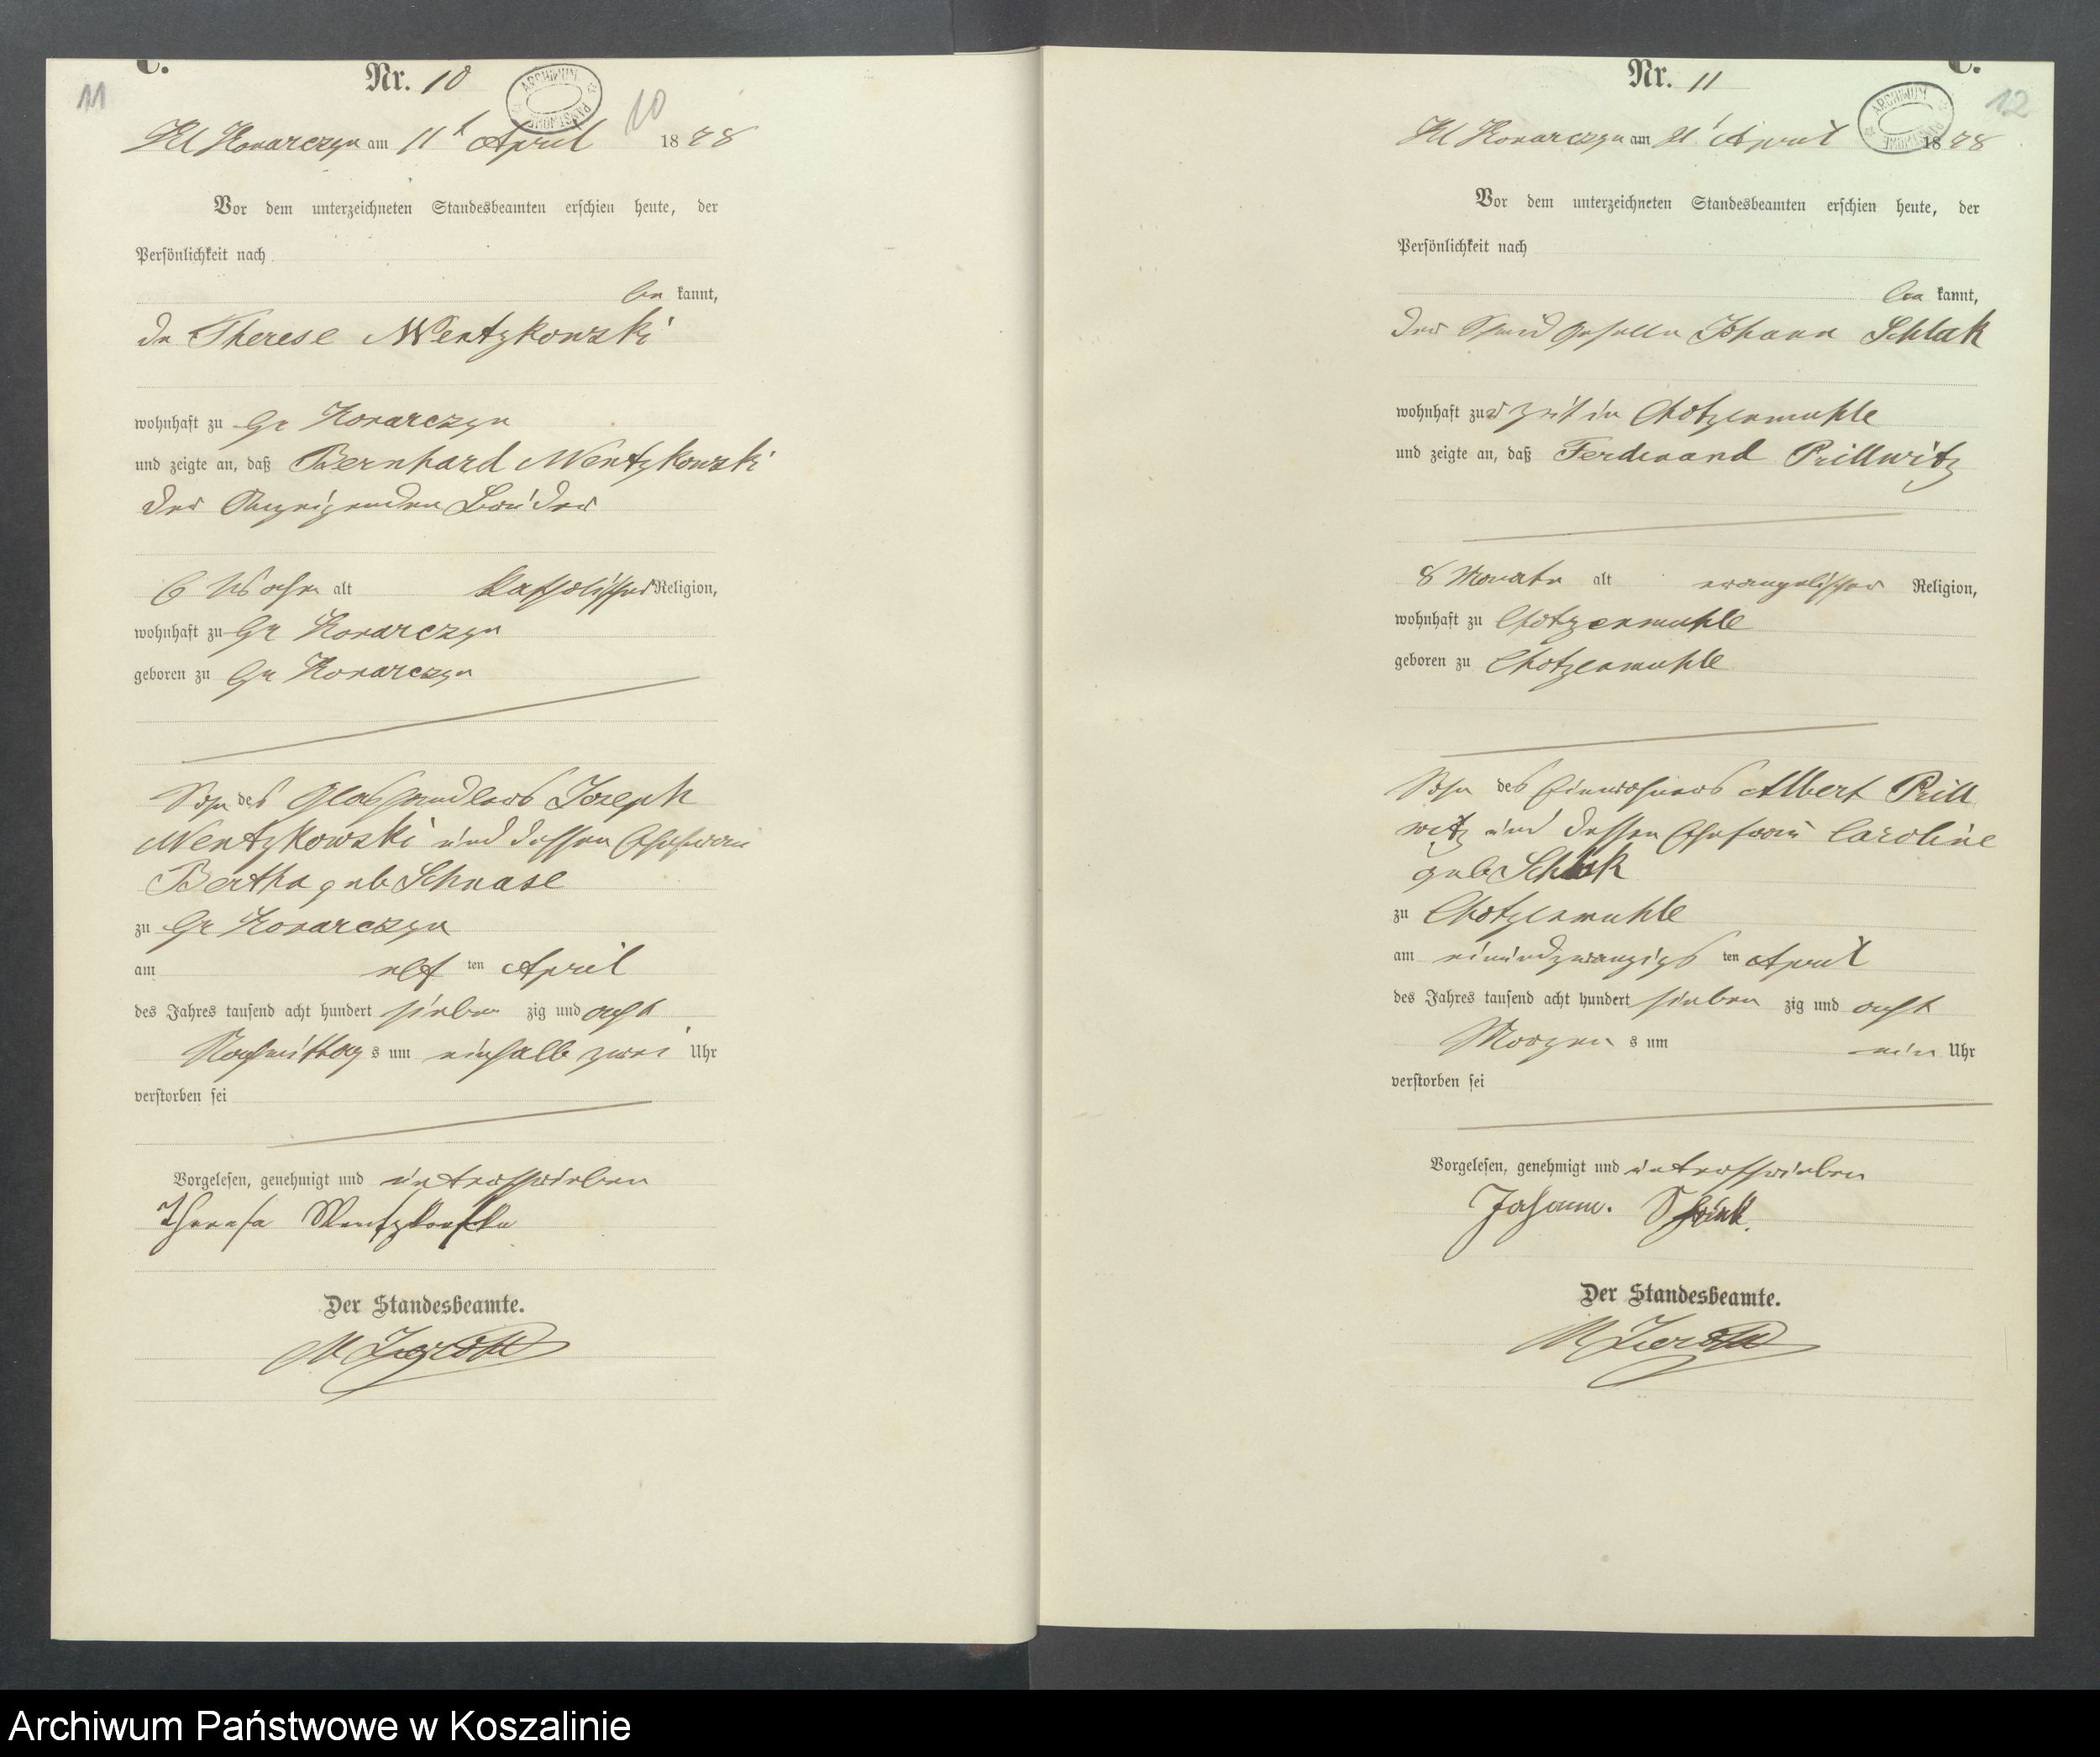 11
C.
Nr. 10
ARCHIWUM PAŃSTWOWE
10
Kl Konarczyn am 11t April 1878
Vor dem unterzeichneten Standesbeamten erschien heute, der
Persönlichkeit nach
be kannt,
die Therese Wentzkowski
wohnhaft zu Gr Konarczyn
und zeigte an, daß Bernhard Wentzkowski
der Anzeigenden Bruder
6 Woche alt katholischer Religion,
wohnhaft zu Gr Konarczyn
geboren zu Gr Konarczyn
Sohn des Glashändlers Joseph
Wentzkowski und dessen Ehefrau
Bertha geb Schnase
zu Gr Konarczyn
am elf ten April
des Jahres tausend acht hundert sieben zig und acht
Nachmittag s um einhalb zwei Uhr
verstorben sei
Vorgelesen, genehmigt und unterschrieben
Theresa
Der Standesbeamte.
C.
Nr. 11
ARCHIWUM PAŃSTWOWE
12
Kl Konarczyn am 21t April 1878
Vor dem unterzeichneten Standesbeamten erschien heute, der
Persönlichkeit nach
be kannt,
der Schmied Geselle Johann Schlak
wohnhaft zur Zeit in Chotzenmuhle
und zeigte an, daß Ferdinand Prillwitz
8 Monate alt evangelischer Religion,
wohnhaft zu Chotzenmuhle
geboren zu Chotzenmuhle
Sohn des Einwohners Albert Prill
witz und dessen Ehefrau Caroline
geb
zu Chotzenmuhle
am einundzwanzigs ten April
des Jahres tausend acht hundert sieben zig und acht
Morgen s um ein Uhr
verstorben sei
Vorgelesen, genehmigt und unterschrieben
Johann.
Der Standesbeamte.
Archiwum Państwowe w Koszalinie